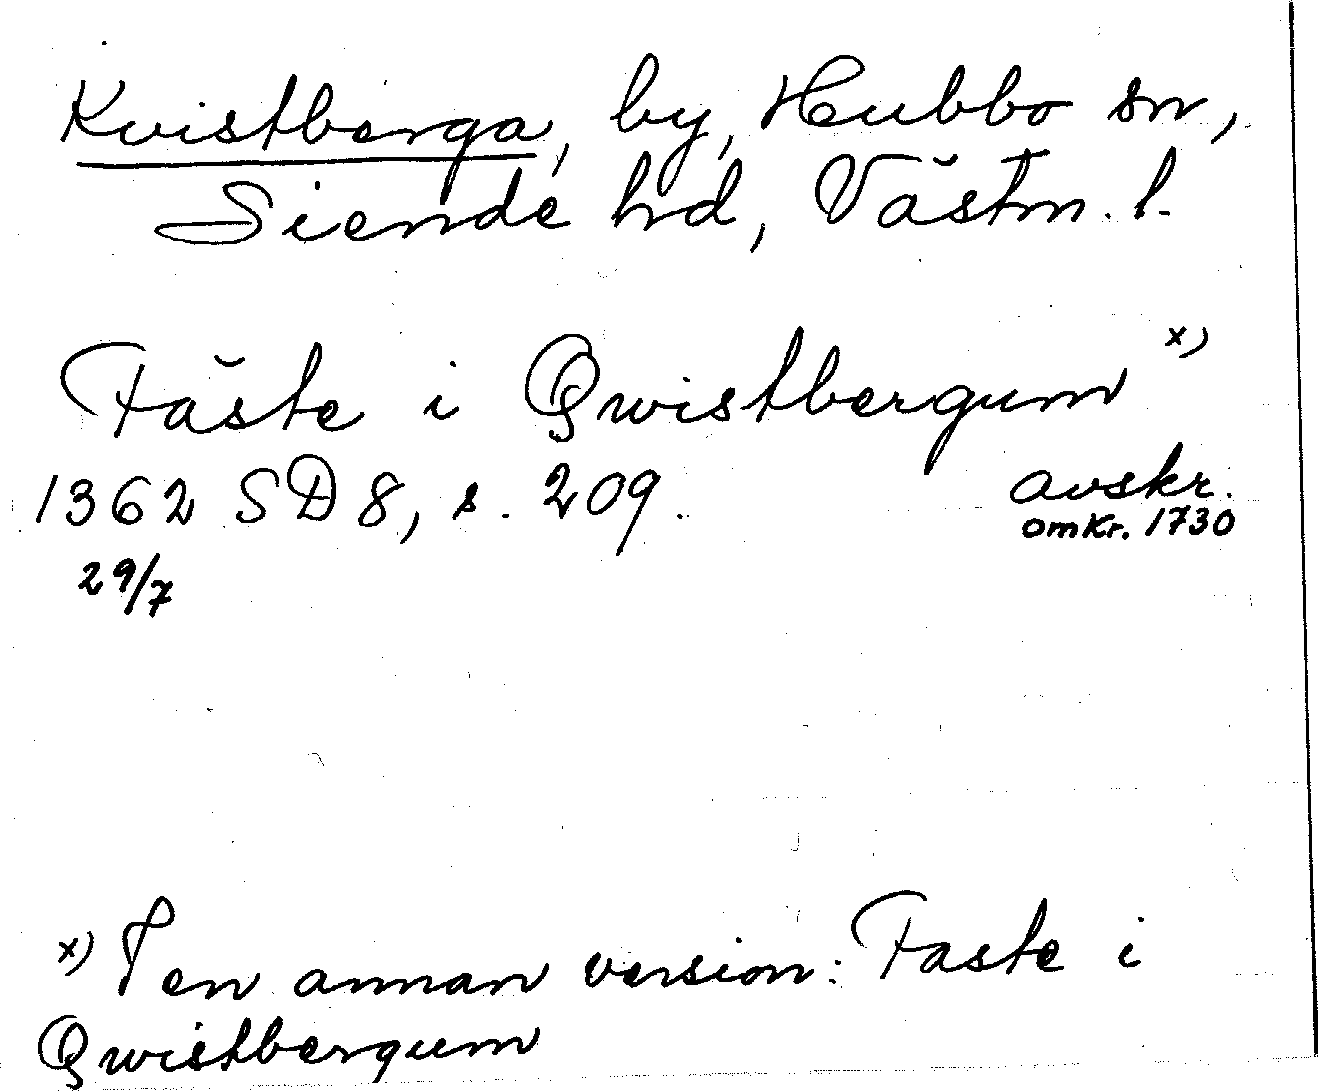 Kvistberga, by, Hubbo sn,
Siende hd, Västm. l.
Fäste i Qwistbergum x)
1362 SD 8, s. 209. avskr.
29/7 omkr. 1730
x) I en annan version: Faste i
Qwistbergum